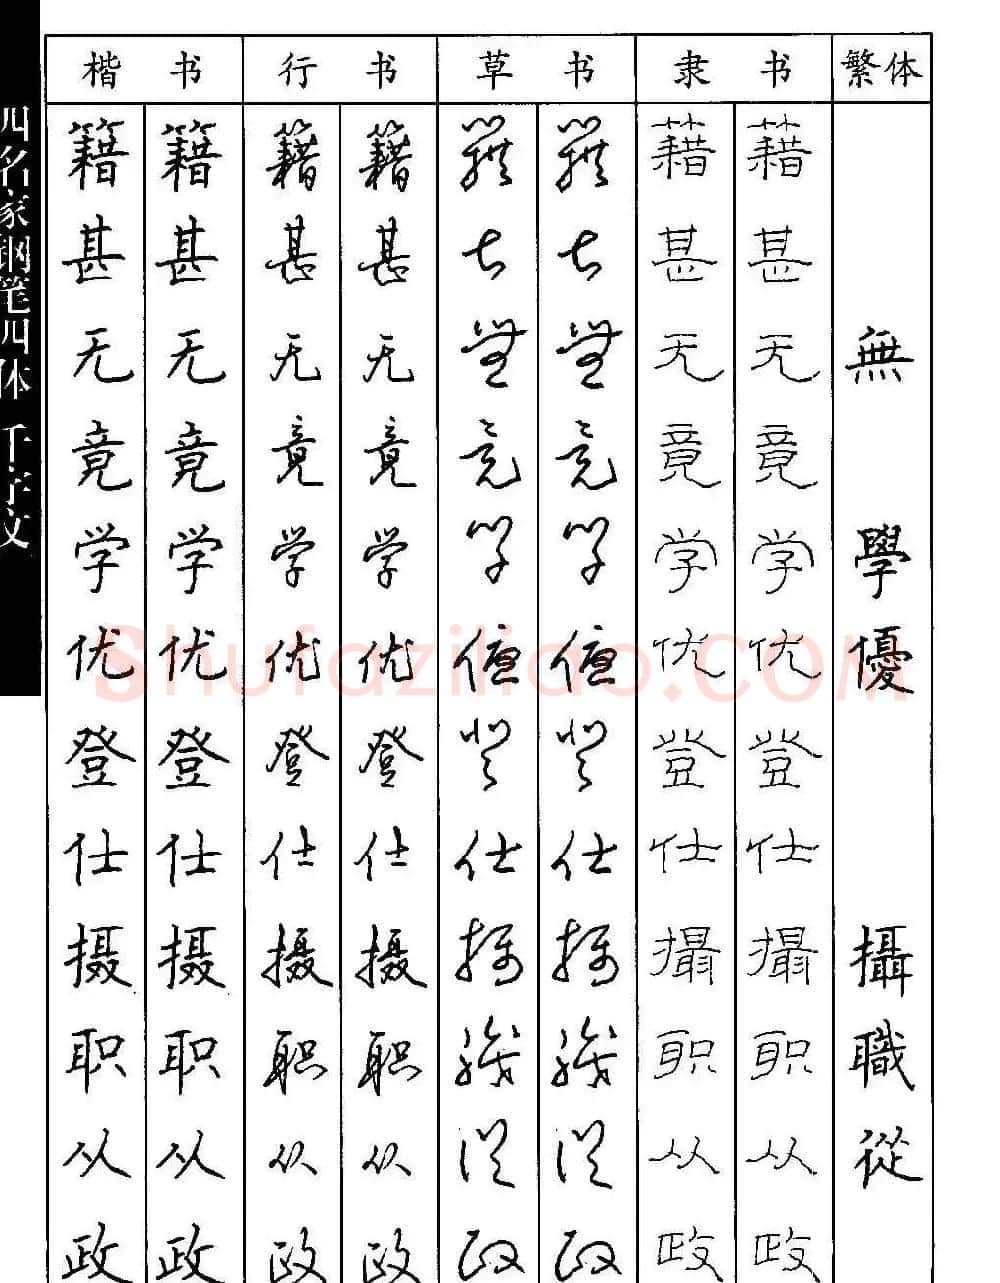 四名家钢笔四体 千字文
楷书 行书 草书 隶书 繁体
籍 籍 籍 籍 籍 籍 籍 籍
甚 甚 甚 甚 甚 甚 甚 甚
无 无 无 无 无 无 无 无 無
竟 竟 竟 竟 竟 竟 竟 竟
学 学 学 学 学 学 学 学 學
优 优 优 优 优 优 优 优 優
登 登 登 登 登 登 登 登
仕 仕 仕 仕 仕 仕 仕 仕
摄 摄 摄 摄 摄 摄 摄 摄 攝
职 职 职 职 职 职 职 职 職
从 从 从 从 从 从 从 从 從
政 政 政 政 政 政 政 政
Shufaziliao.COM